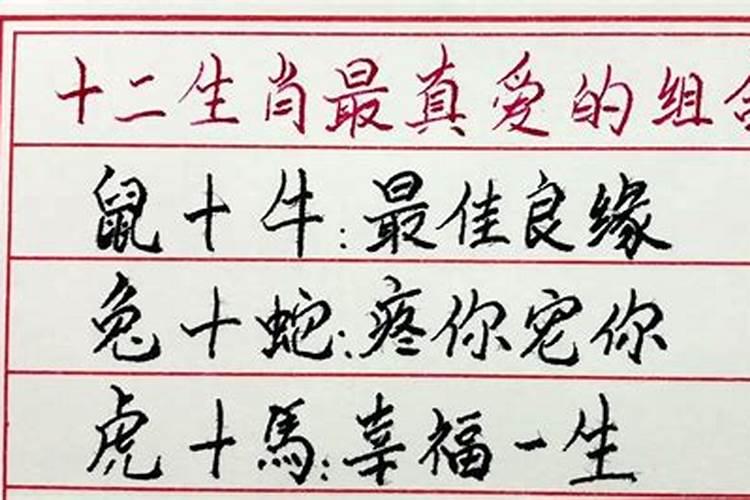 十二生肖最真爱的组合
鼠+牛:最佳良缘
兔+蛇:疼你宠你
虎+馬:幸福一生